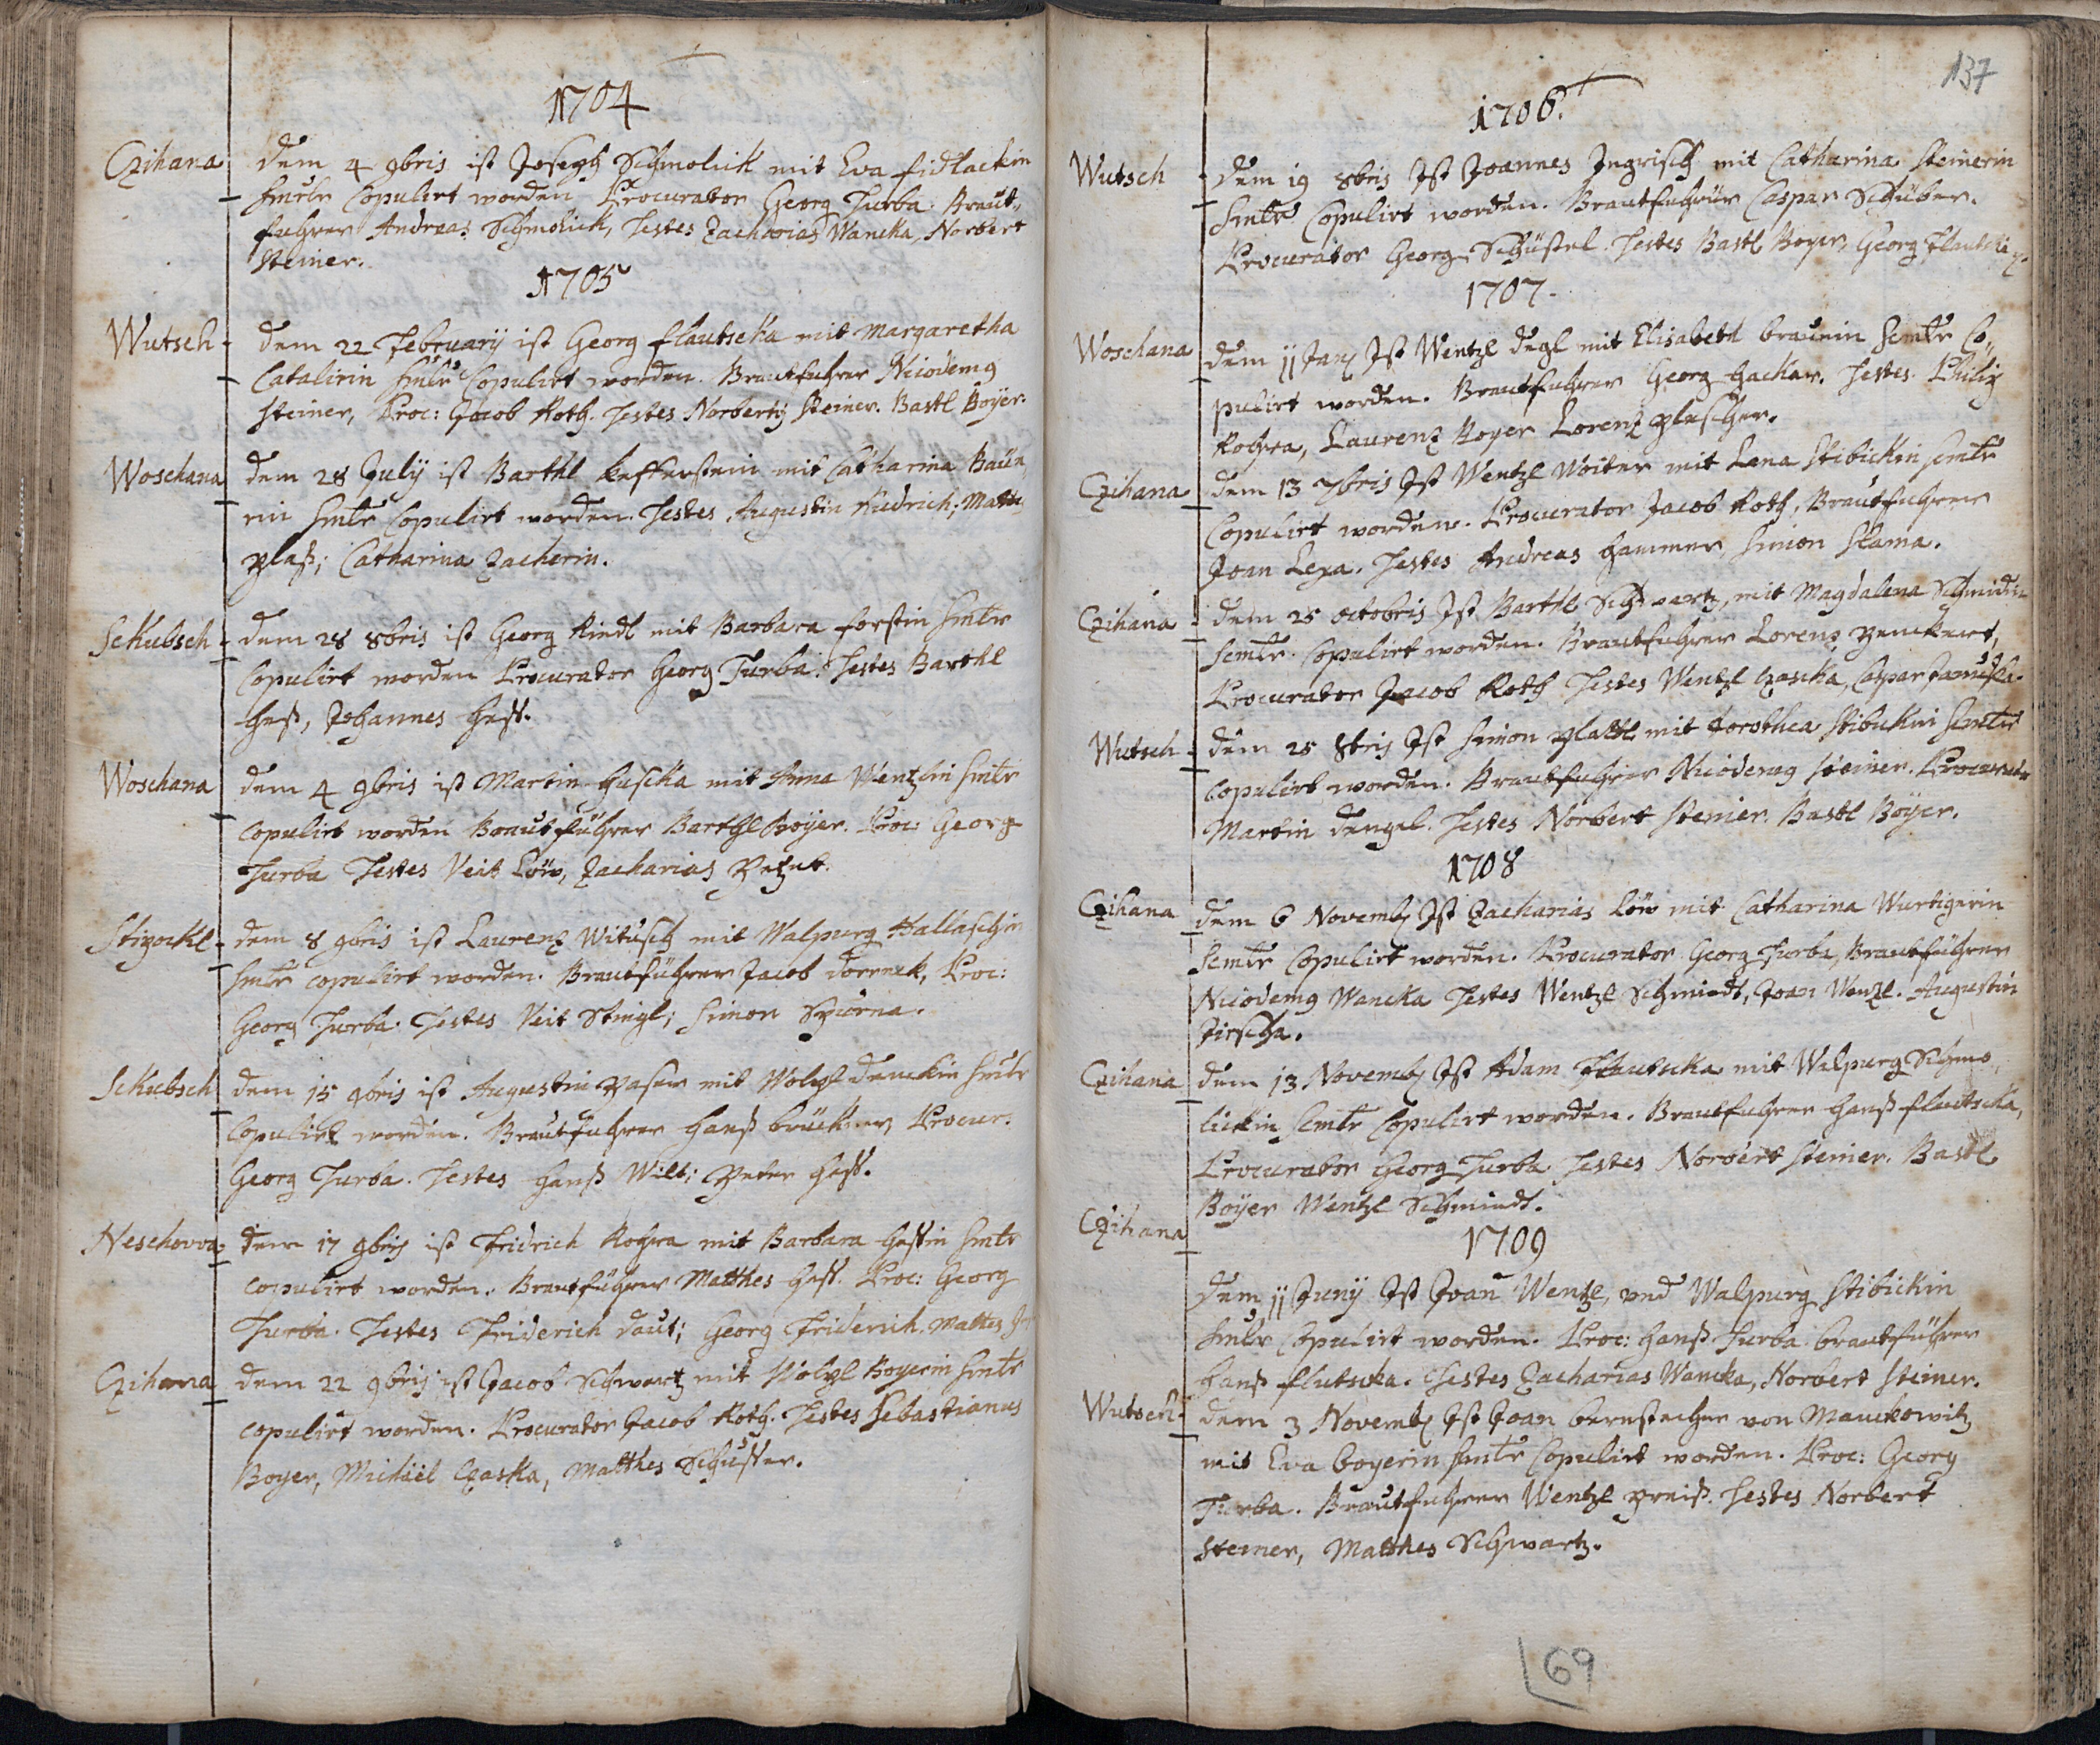 1704
Czihana dem 4 9bris ist Joseph Schmolick mit Eva fidlackin
simlr Copulirt worden Procurator Georg Turba. Braut„
fuhrer Andreas Schmolick, Testes Zacharias Wancka, Norbert
Steiner.
1705
Wutsch dem 22 February ist Georg flautscka mit Margaretha
Catalirin simlr Copulirt worden. Brautfuhrer Nicodemg
Steiner, Proc: Jacob Roth. Testes Norberty Steiner. Bastl Boÿer.
Woschana dem 28 Julÿ ist Barthl kefferstein mit Catharina Baün„
rin simlr Copulirt worden. Testes Augustin Fridrich; Matte
plaß; Catharina Zacherin.
Schubsch dem 28 8bris ist Georg Riedl mit Barbara forstin simlr
Copulirt worden Procurator Georg Turba. Testes Barthl
heß, Johannes hess.
Woschana dem 4 9bris ist Martin huscka mit Anna Wentzlin simlr
copulirt worden Brautführer Barthl Boÿer. Proc: Georg
Turba Testes Veit Löw, Zacharias
dem 8 9bris ist Laurenz Witusch mit Walpurg Hallaschin
simlr copulirt worden. Brautführer Jacob Dorneck, Proc:
Georg Turba. Testes Veit Stingl; Simon
Schubsch dem 15 9bris ist Augustin mit Wolpl Denckin simlr
Copulirt worden. Brautfuhrer Hanß brückner, Procur.
Georg Turba. Testes Hanß Wilt; Peter hess.
Neschowa dem 17 9bris ist Fridrich Rohra mit Barbara hessin simlr
copulirt worden. Brautführer Matthes hess. Proc: Georg
Turba. Testes Friderich Daut; Georg Friderich. Mattes
Czihana dem 22 9bris ist Jacob Schwartz mit Wolpl Boyerin simlr
copulirt worden. Procurator Jacob Roth. Testes Sebastianus
Boyer, Michäel Czaska, Matthes Schuster.
137
1706.
Wutsch dem 19 8bris Ist Joannes Ingrisch mit Catharina Steinerin
simlr Copulirt worden. Brautfuhrer Caspar Schüber.
Procurator Georg Schüstel. Testes Bastl Boyer, Georg
1707.
Woschana dem 11 Jan Ist Wentzl Degl mit Elisabeth Braunin simlr Co„
pulirt worden. Brautfuhrer Georg hackar. Testes Philip
Rohra, Laurenz Boyer Lorenz plascher.
Czihana dem 13 7bris Ist Wentzl Woiter mit Lena Stibickin simlr
Copulirt worden. Procurator Jacob Roth, Brautfuhrer
Joan Lexa. Testes Andreas hammer, Simon Slama.
Czihana dem 25 octobris Ist Barthl Schwartz, mit Magdalena Schmidin
simlr Copulirt worden. Brautfuhrer Lorenz Penckert,
Procurator Jacob Roth Testes Wentzl Czascka, Caspar
Wutsch dem 25 8bris Ist Simon plattl mit Dorothea Stibickin simlr
copulirt worden. Brautfuhrer Nicodemg Steiner. Procurator
Martin Dengel. Testes Norbert Steiner. Bastl Boÿer.
1708
Czihana dem 6 Novemb Ist Zacharias Löw mit Catharina Wurtigerin
simlr Copulirt worden. Procurator Georg Turba, Brautführer
Nicodemg Wancka Testes Wentzl Schmiedt, Joan Wenzl. Augustin
Pirscha.
Czihana dem 13 Novemb Ist Adam Flautscka mit Walpurg Schmo„
lickin simlr Copulirt worden. Brautfuhrer Hanß flautscka,
Procurator Georg Turba Testes Norbert Steiner. Bastl
Boÿer Wentzl Schmiedt.
Czihana
1709
dem 11 Junÿ Ist Joan Wentzl, und Walpurg Stibickin
simlr Copulirt worden. Proc: Hanß Turba. brautführer
Hanß flutscka. Testes Zacharias Wancka, Norbert Steiner.
Wutsch dem 3 Novemb Ist Joan bernstecher von Manckowitz
mit Eva boyerin simlr Copulirt worden. Proc: Georg
Turba. Brautfuhrer Wentzl preiß. Testes Norbert
Steiner, Matthes Schwartz.
69